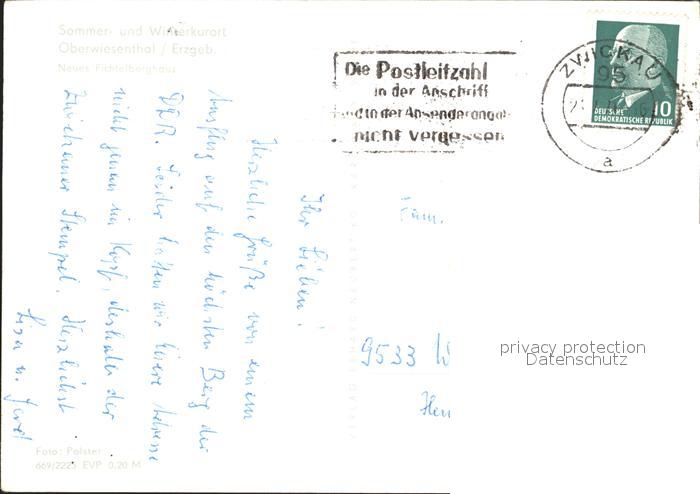 Sommer- und Winterkurort
Oberwiesenthal / Erzgeb.
Neues Fichtelberghaus
Die Postleitzahl
in der Anschrift
und in der Absenderangabe
nicht vergessen
ZWICKAU
95
a
10
DEUTSCHE
DEMOKRATISCHE REPUBLIK
Ihr Lieben!
Herzliche Grüße von einem
Ausflug auf den höchsten Berg der
DDR. Leider hatten wir Eure Adresse
nicht genau im Kopf, deshalb der
Zwickauer Stempel. Herzlichst
Fam.
9533 W
privacy protection
Datenschutz
Foto: Polster
669/2225 EVP 0,20 M